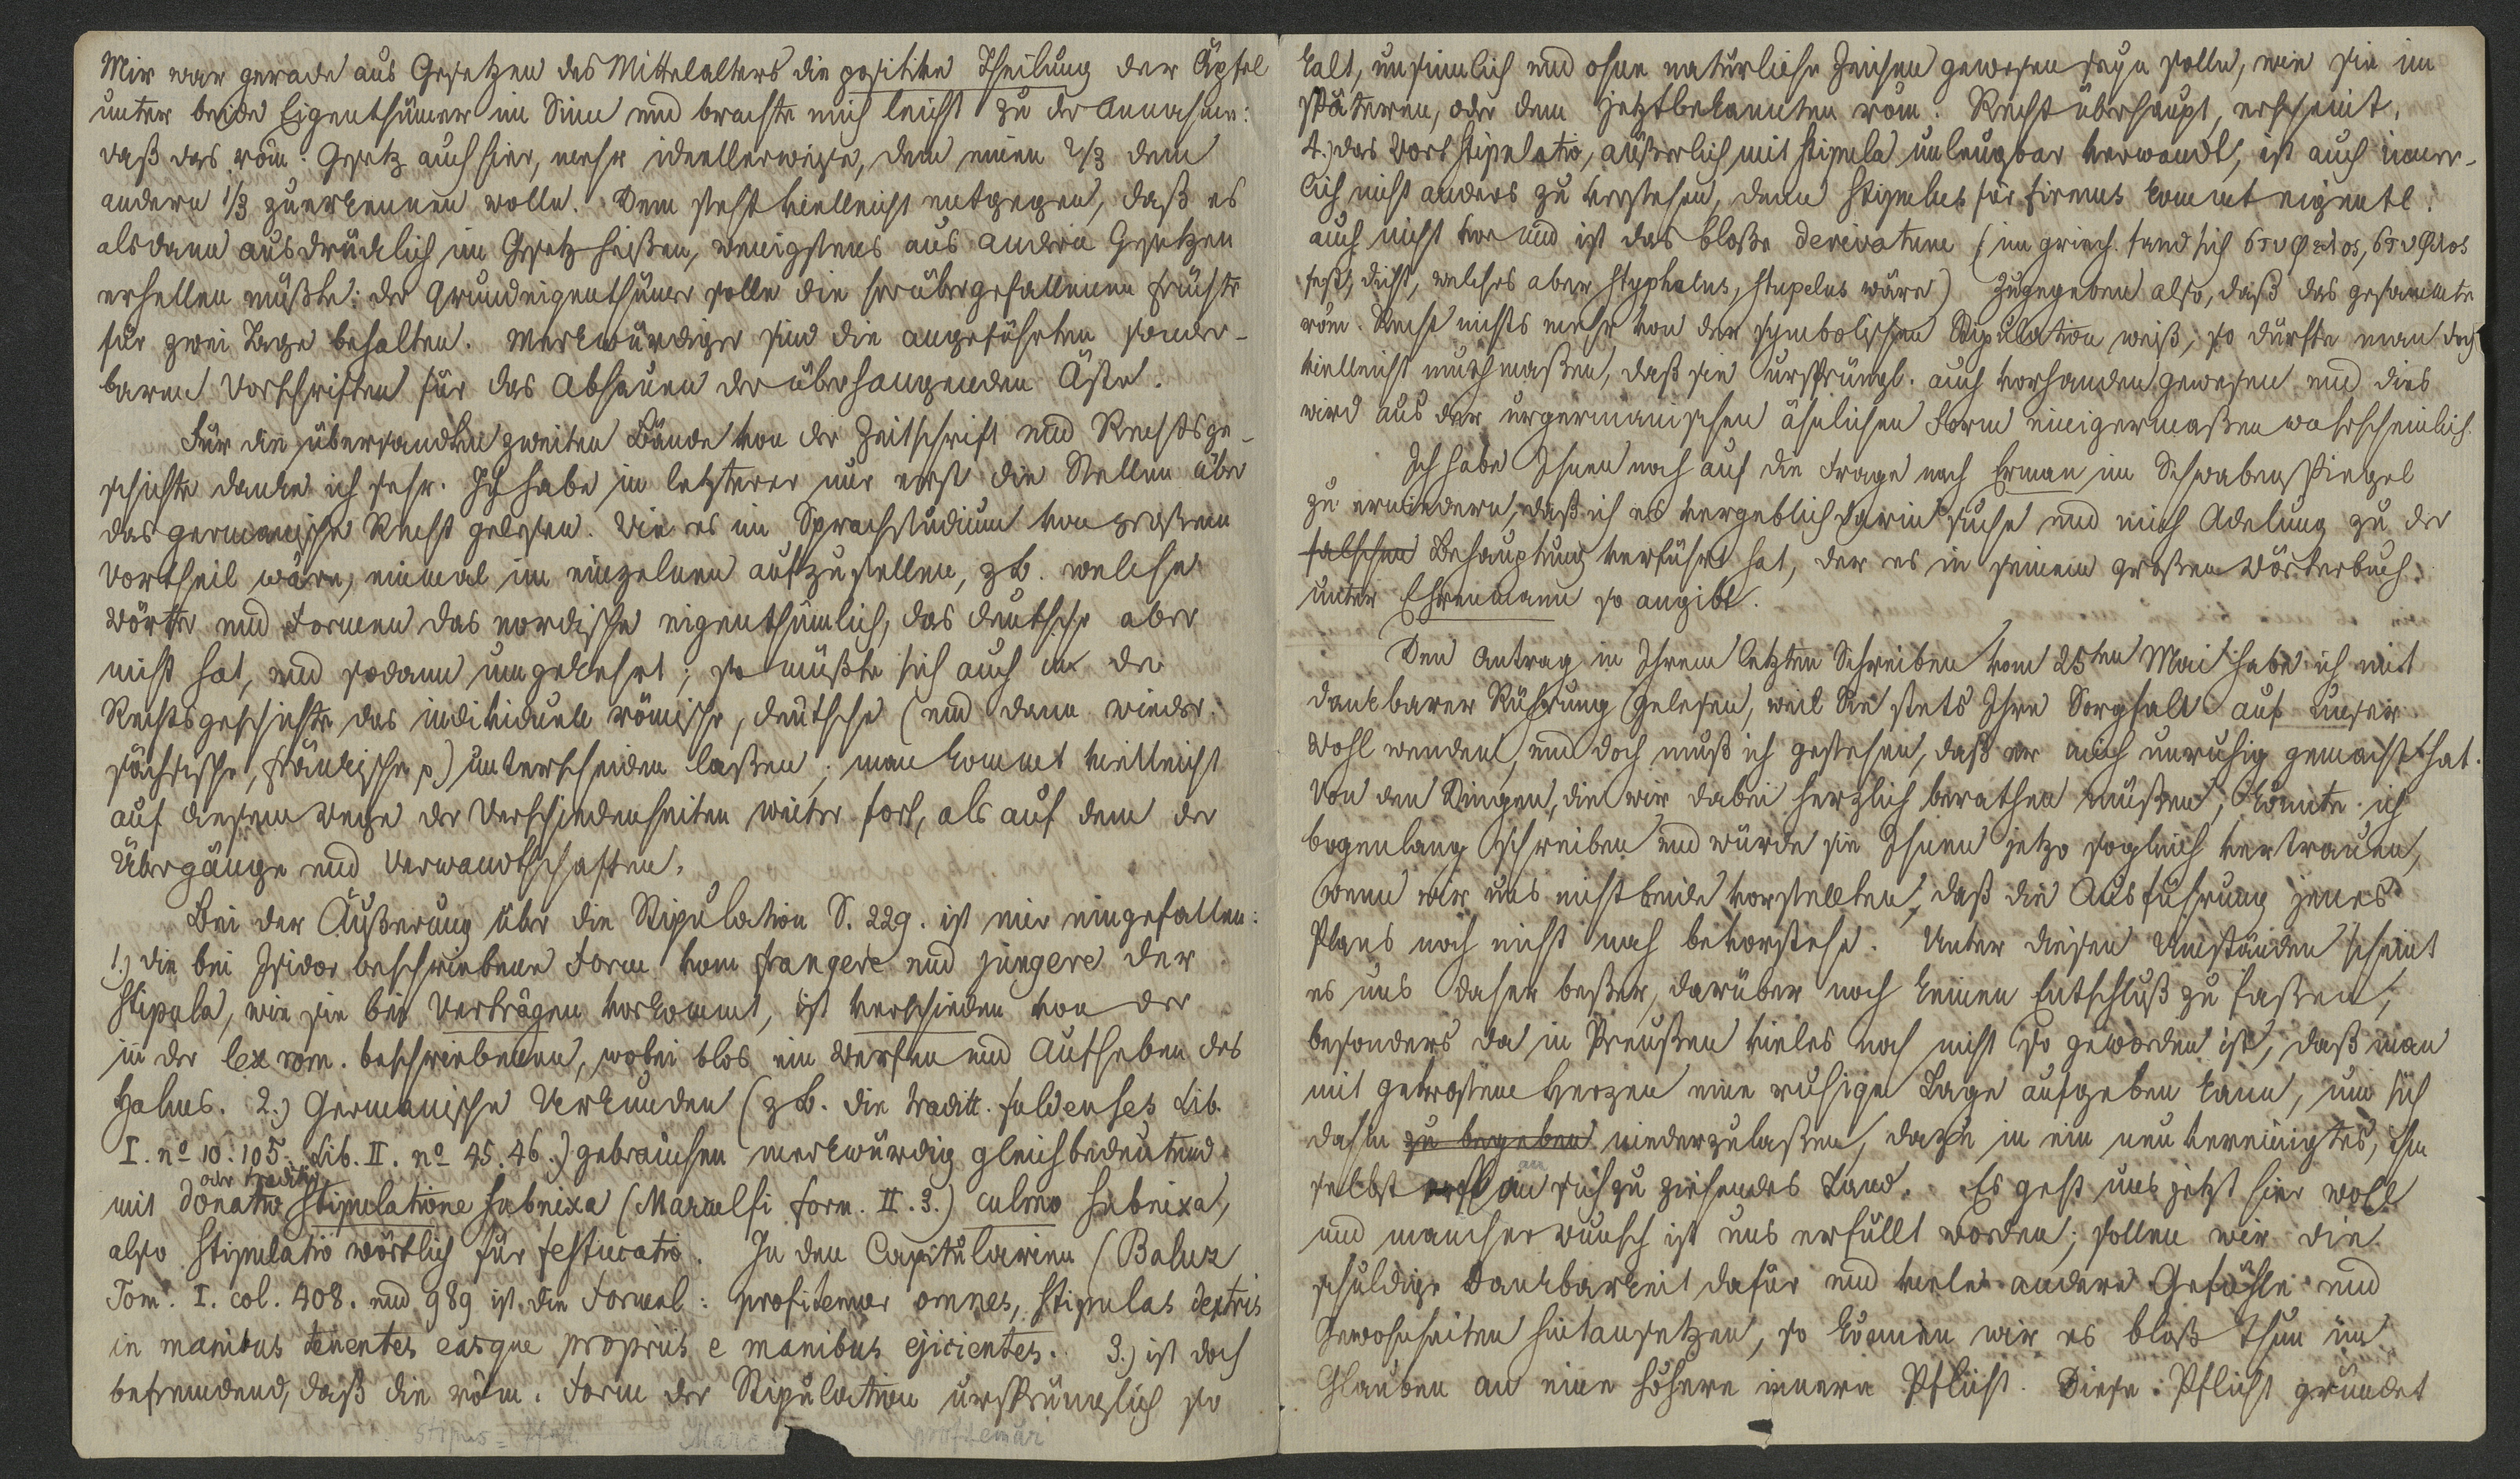 Mir war gerade aus Gesetzen des Mittelalters die positive Theilung der Äpfel
unter beide Eigenthümer im Sinn und brachte mich leicht zu der Annahme:
daß das röm. Gesetz auch hier, mehr ideellerweise, dem einen 2/3 dem
andern 1/3 zuerkennen wolle. Dem steht vielleicht entgegen, daß es
alsdann ausdrücklich im Gesetz heißen, wenigstens aus andern Gesetzen
erhellen müßte: der Grundeigenthümer solle die herübergefallenen Früchte
für zwei Tage behalten. Merkwürdiger sind die angeführten sonder-
baren Vorschriften für das Abhauen der überhangenden Äste.
Für die übersandten zweiten Bände von der Zeitschrift und Rechtsge-
schichte danke ich sehr. Ich habe in letzterer nur erst die Stellen über
das germanische Recht gelesen. Wie es im Sprachstudium von großem
Vortheil wäre, einmal im einzelnen aufzustellen, zb. welche
Wörter und Formen das nordische eigenthümlich, das deutsche aber
nicht hat, und sodann umgekehrt; so müßte sich auch in der
Rechtsgeschichte das individuell römische, deutsche (und dann wieder:
sächsische, fränkische p) unterscheiden laßen; man kommt vielleicht
auf diesem Wege der Verschiedenheiten weiter fort, als auf dem der
Übergänge und Verwandtschaften.
Bei der Äußerung über die Stipulation S. 229. ist mir eingefallen:
1.) die bei Isidor beschriebene Form vom frangere und jungere der
stipula, wie sie bei Verträgen vorkommt, ist verschieden von der
in der lex rom. beschriebenen, wobei blos ein Werfen und Aufheben des
Halms. 2.) Germanische Urkunden (zb. die traditt. fuldenses Lib.
I. no 10. 105. Lib. II. no 45. 46.) gebrauchen merkwürdig gleichbedeutend
oder traditio
mit donatio stipulatione subnixa (Marculfi form. II. 3.) culmo subnixa,
also stipulatio wörtlich für festucatio. In den Capitularien (Baluz
Tom. I. col. 408. und 989 ist die Formel: profitemur omnes, stipulas dextris
in manibus tenentes easque propriis e manibus ejicientes. 3.) ist doch
befremdend, daß die röm. Form der Stipulation ursprünglich so
stipus =
profitemur
kalt, unsinnlich und ohne natürliche Zeichen gewesen seyn solle, wie sie im
späteren, oder dem jetztbekannten röm. Recht überhaupt, erscheint.
4.) das Wort stipulatio, äußerlich mit stipula unleugbar verwandt, ist auch inner-
lich nicht anders zu verstehen, denn stipulus für firmus kommt eigentl.
auch nicht vor und ist das bloße derivatum (im griech. fand sich στυφελος, στυφλος
fest, dicht, welches aber styphelus, stupelus wäre) Zugegeben also, daß das gesammte
röm. Recht nichts mehr von der symbolischen Stipulation weiß, so dürfte man doch
vielleicht muthmaßen, daß sie ursprüngl. auch vorhanden gewesen und dies
wird aus der urgermanischen ähnlichen Form einigermaßen wahrscheinlich.
Ich habe Ihnen noch auf die Frage nach Erman im Schwabenspiegel
zu erwiedern, daß ich es vergeblich darin suche und mich Adelung zu der
falschen Behauptung verführt hat, der es in seinem großen Wörterbuch
unter Ehrenmann so angibt.
Den Antrag in Ihrem letzten Schreiben vom 25ten Mai habe ich mit
dankbarer Rührung gelesen, weil Sie stets Ihre Sorgfalt auf unser
Wohl wenden, und doch muß ich gestehen, daß er mich unruhig gemacht hat.
Von den Dingen, die wir dabei herzlich berathen müßen, könnte ich
bogenlang schreiben und würde sie Ihnen jetzo sogleich vertrauen,
wenn wir uns nicht beide vorstellten, daß die Ausführung jenes
Plans noch nicht nah bevorstehe. Unter diesen Umständen scheint
es uns daher beßer, darüber noch keinen Entschluß zu faßen,
besonders da in Preußen vieles noch nicht so geworden ist, daß man
mit getrostem Herzen eine ruhige Lage aufgeben kann, um sich
dahin zu begeben niederzulaßen, dazu in ein neu vereinigtes, ihn
selbst erst an sich zu ziehendes Land. Es geht uns jetzt hier wohl
und mancher Wunsch ist uns erfüllt worden; sollen wir die
schuldige Dankbarkeit dafür und viele andere Gefühle und
Gewohnheiten hintansetzen, so können wir es bloß thun im
Glauben an eine höhere innere Pflicht. Diese Pflicht gründet